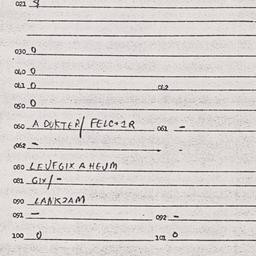 021
030 0
040 0
041 0 042
050 0
060 A DUKTER/ FELC÷1R 061 -
062 -
080 LEVEGIX A HEJM
081 GIX/-
090 LANKJAM
091 - 092 -
100 0 101 0